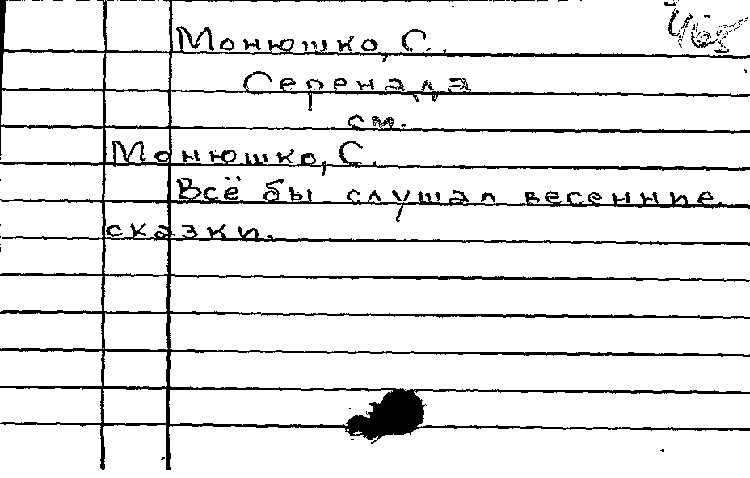 Монюшко, С.
Серенада
см.
Монюшко, С.
Всё бы слушал весенние
сказки.